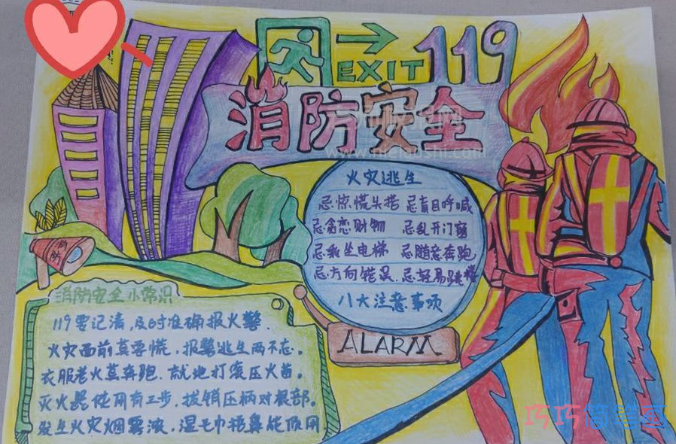 EXIT 119
消防安全
火灾逃生
忌惊慌失措 忌盲目呼喊
忌贪恋财物 忌乱开门窗
忌乘坐电梯 忌随意奔跑
忌方向错误 忌轻易跳楼
八大注意事项
ALARM
消防
消防安全小常识
119要记清,及时准确报火警.
火灾面前莫要慌,报警逃生两不忘.
衣服着火莫奔跑,就地打滚压火苗.
灭火器使用有三步,拔销压柄对根部.
发生火灾烟雾浓,湿毛巾捂鼻能顶用
巧巧